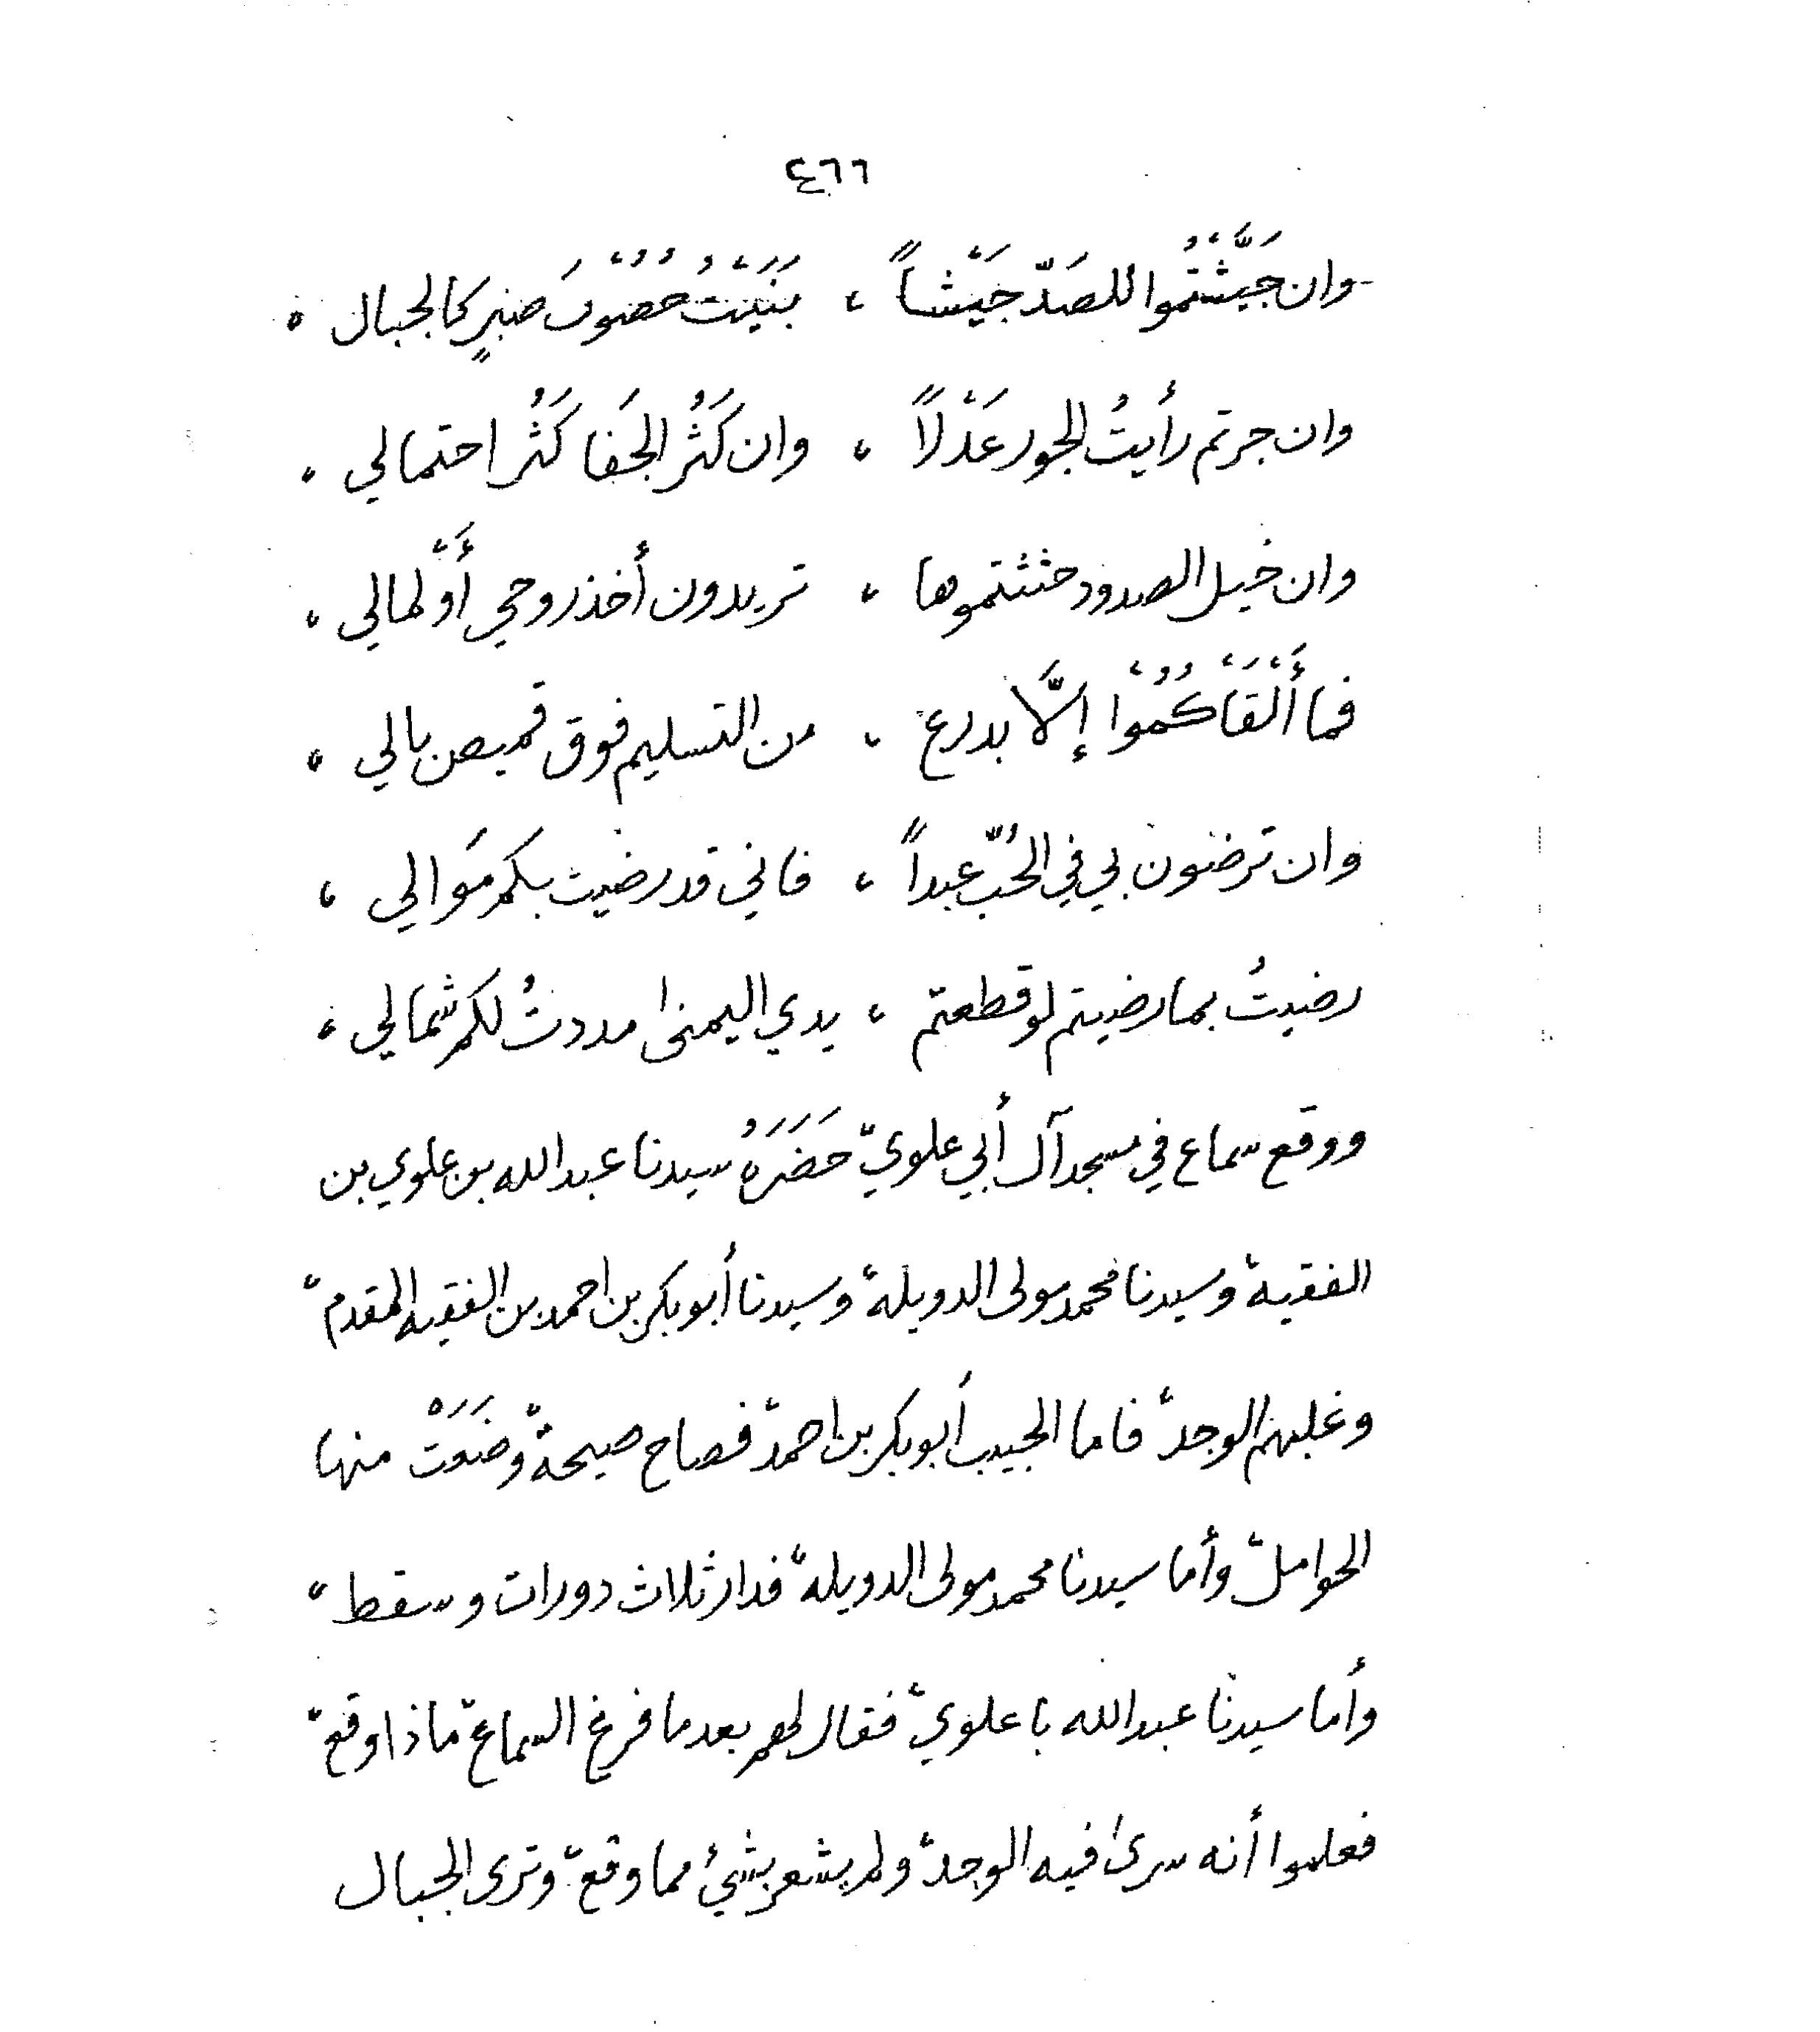 ٤٦٦
وان جَيَّشْتُموا للصَدّ جَيْشاً ، بَنَيْتُ حُصُوْنَ صبرٍ كالجبال ،
وان جرتم رأيتُ الجور عَدْلاً ، وان كَثُر الجَفَا كَثُر احتمالي ،
وان خيل الصدود حثثتموها ، تريدون أخذ روحي أَوْ لمالي ،
فما أَلْقَاكُمُوْا إلَّا بدرع ، من التسليم فوق قميصن بالي ،
وان ترضون بي في الحُبّ عبداً ، فاني قد رضيت بكم مَوالي ،
رضيتُ بما رضيتم لو قطعتم ، يدي اليمنىٰ مددتُ لكم شمالي ،
ووقع سماع في مسجد آل أبي علويّ حَضَرَهُ سيدنا عبد الله بن علوي بن
الفقيه ، وسيدنا محمد مولى الدويلة ، وسيدنا أبو بكر بن احمد بن الفقيه المقدم ،
وغلبهم الوجد ، فاما الحبيب أبو بكر بن احمد ، فصاح صيحة ، وضَعَتْ منها
الحوامل ، وأما سيدنا محمد مولى الدويله ، فدار ثلاث دورات وسقط ،
وأما سيدنا عبد الله با علوي ، فقال لهم بعد ما فرغ السماع ، ماذا وقع ،
فعلموا أنه سرىٰ فيه الوجد ، ولم يشعر بشيْء مما وقع ، وترى الجبال